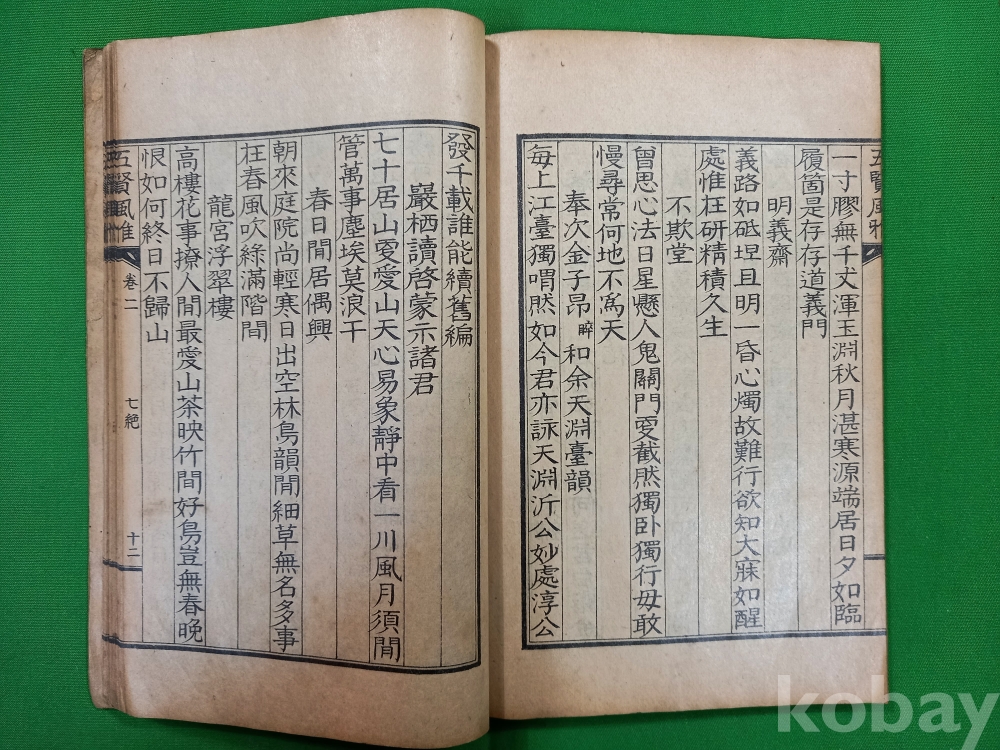 五賢風雅
一寸膠無千丈渾玉淵秋月湛寒源端居日夕如臨
履箇是存存道義門
明義齋
義路如砥坦且明一昏心燭故難行欲知大寐如醒
處惟在硏精積久生
不欺堂
曾思心法日星懸人鬼關門更截然獨卧獨行毋敢
慢尋常何地不爲天
奉次金子昂睟和余天淵臺韻
每上江臺獨喟然如今君亦詠天淵沂公妙處淳公
發千載誰能續舊編
巖栖讀啓蒙示諸君
七十居山更愛山天心易象靜中看一川風月須閒
管萬事塵埃莫浪干
春日閒居偶興
朝來庭院尚輕寒日出空林鳥韻閒細草無名多事
在春風吹綠滿階間
龍宮浮翠樓
高樓花事撩人間最愛山茶映竹間好鳥豈無春晚
恨如何終日不歸山
五賢風雅
卷二
七絶
十二
kobay